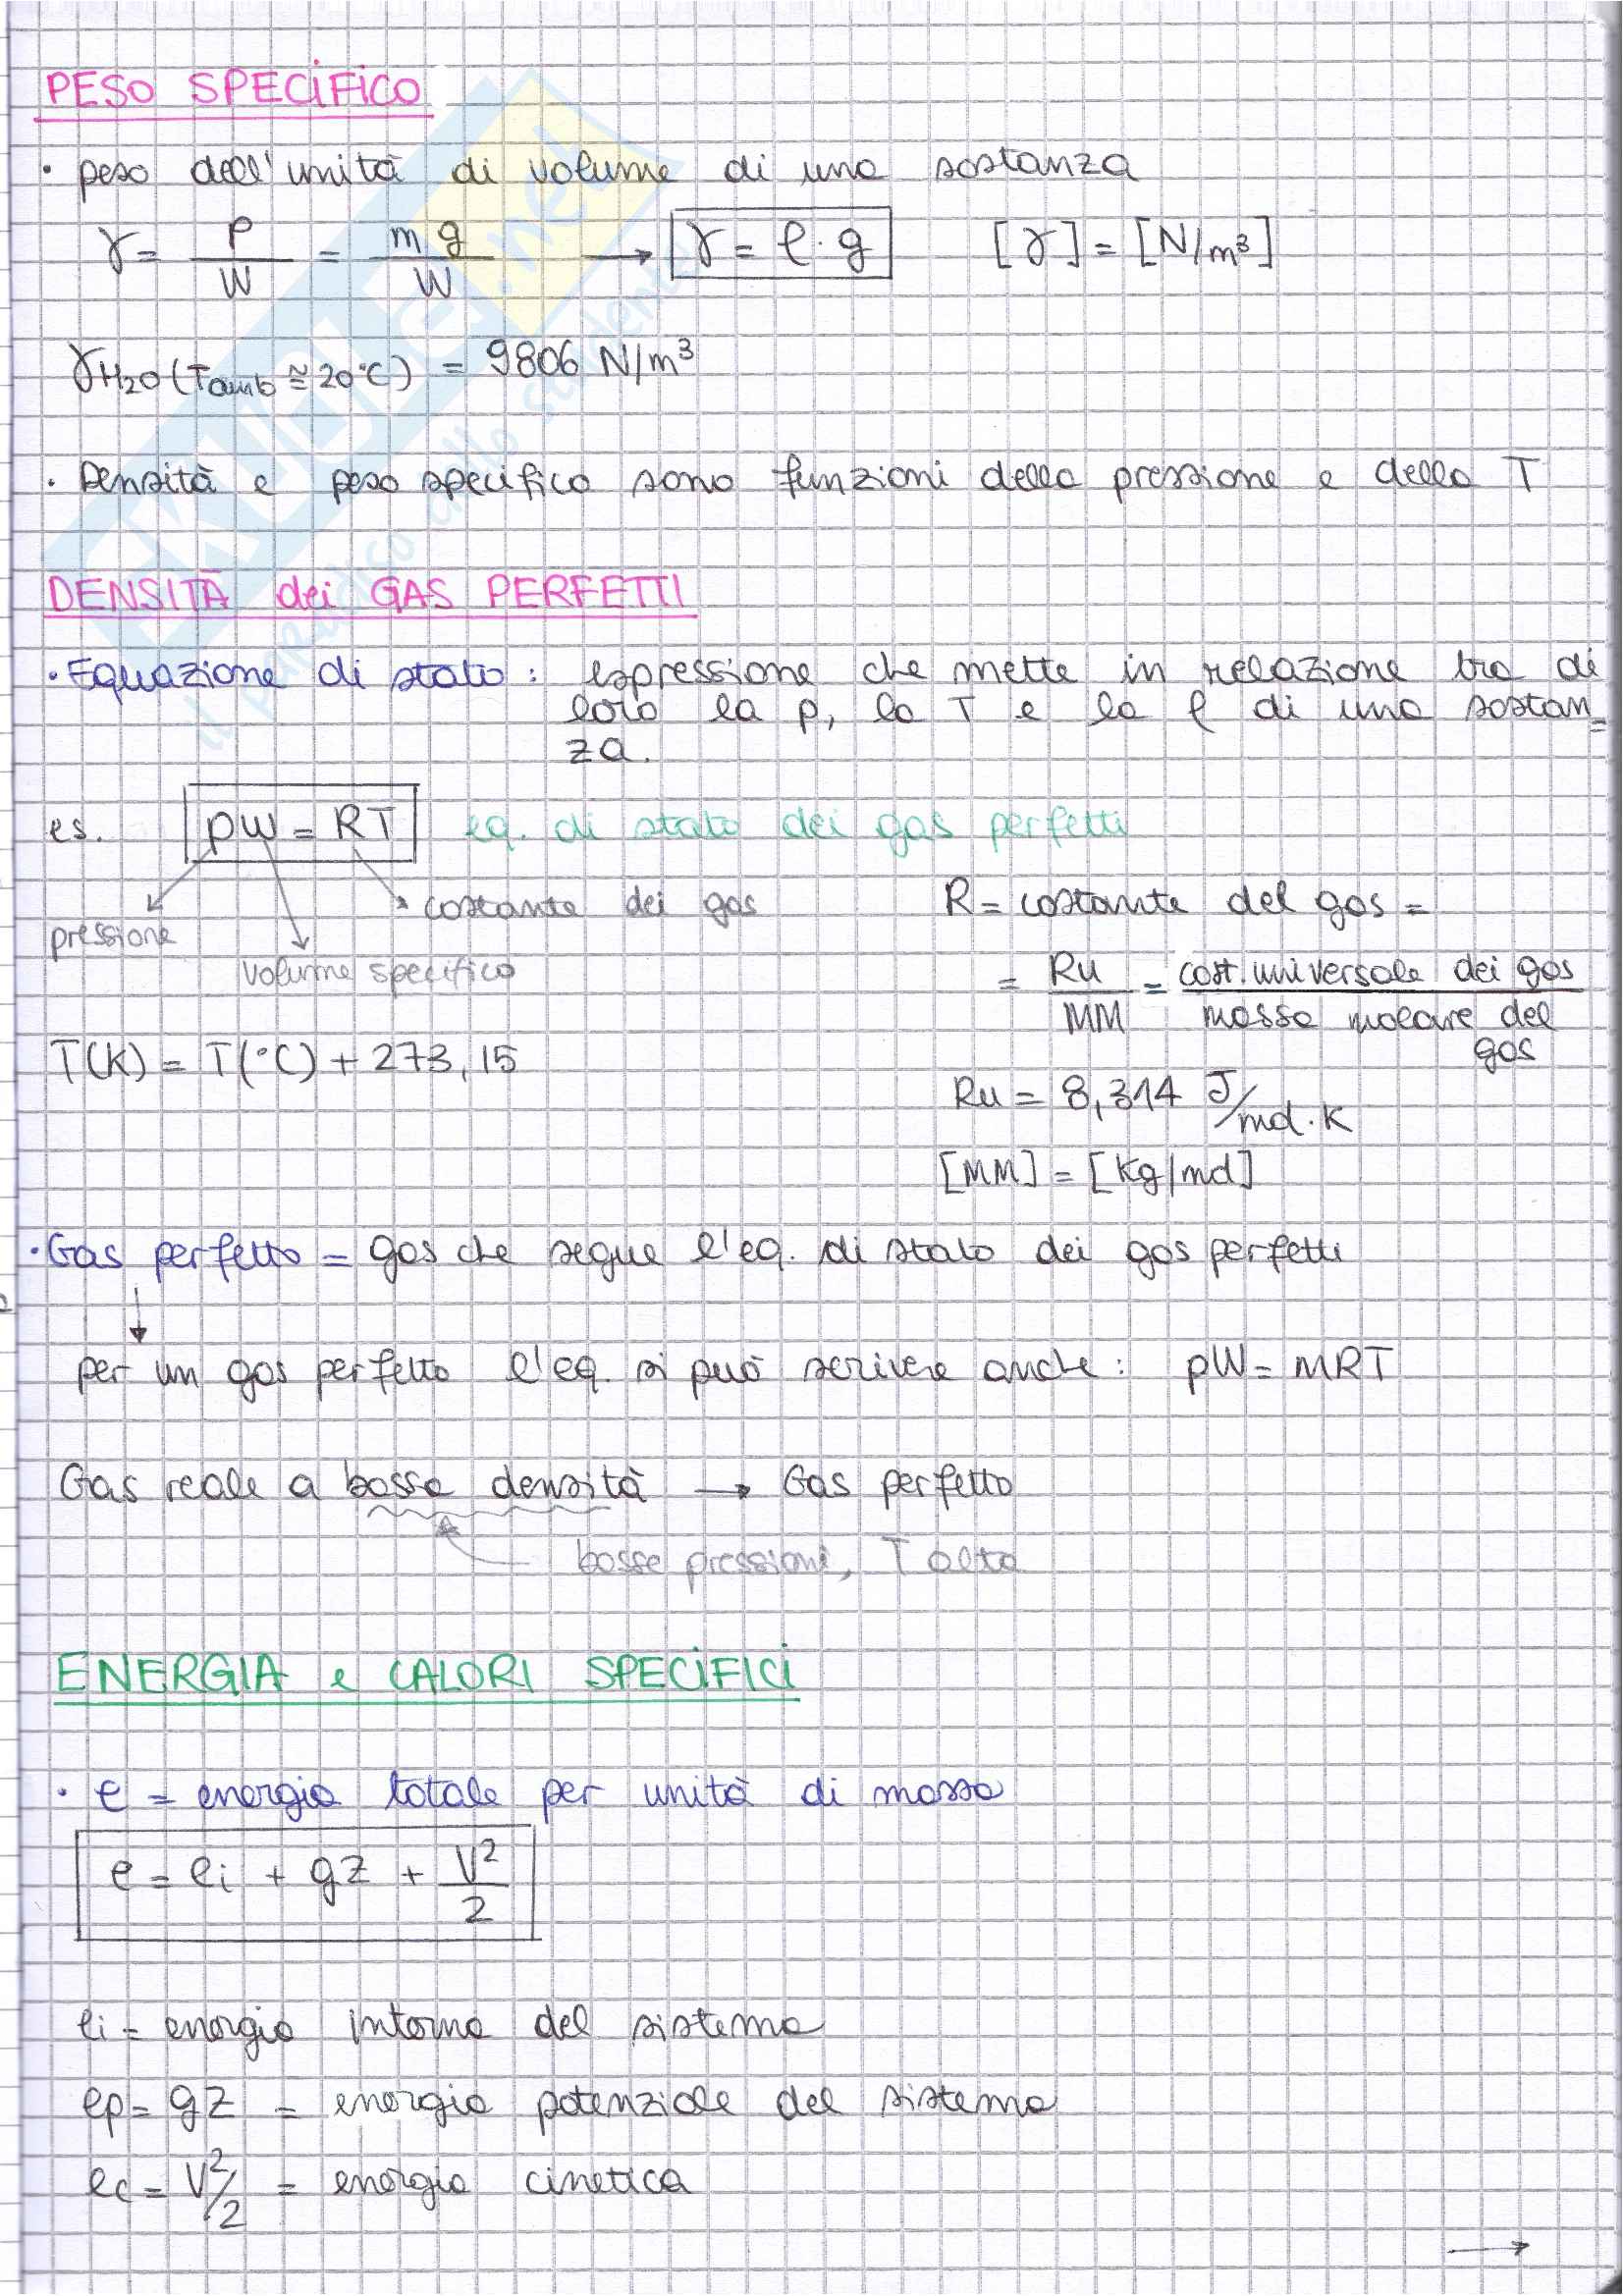 PESO SPECIFICO
• peso dell'unità di volume di una sostanza
γ = P/W = mg/W → γ = ρ·g [γ] = [N/m³]
γH₂O (Tamb ≅ 20°C) = 9806 N/m³
• Densità e peso specifico sono funzioni della pressione e della T
DENSITÀ dei GAS PERFETTI
• Equazione di stato: espressione che mette in relazione tra di
loro la p, la T e la ρ di una sostan=
za.
es. pW = RT eq. di stato dei gas perfetti
pressione
volume specifico
costante dei gas
R = costante del gas =
= Ru/MM = cost. universale dei gas/massa molare del gas
T(K) = T(°C) + 273,15
Ru = 8,314 J/mol·K
[MM] = [Kg/mol]
• Gas perfetto = gas che segue l'eq. di stato dei gas perfetti
↓
per un gas perfetto l'eq. si può scrivere anche: pW = MRT
Gas reale a bassa densità → Gas perfetto
basse pressioni, T alta
ENERGIA e CALORI SPECIFICI
• e = energia totale per unità di massa
e = ei + gz + V²/2
ei = energia interna del sistema
ep = gz = energia potenziale del sistema
ec = V²/2 = energia cinetica
→
SKUOLA.net
il paradiso dello studente